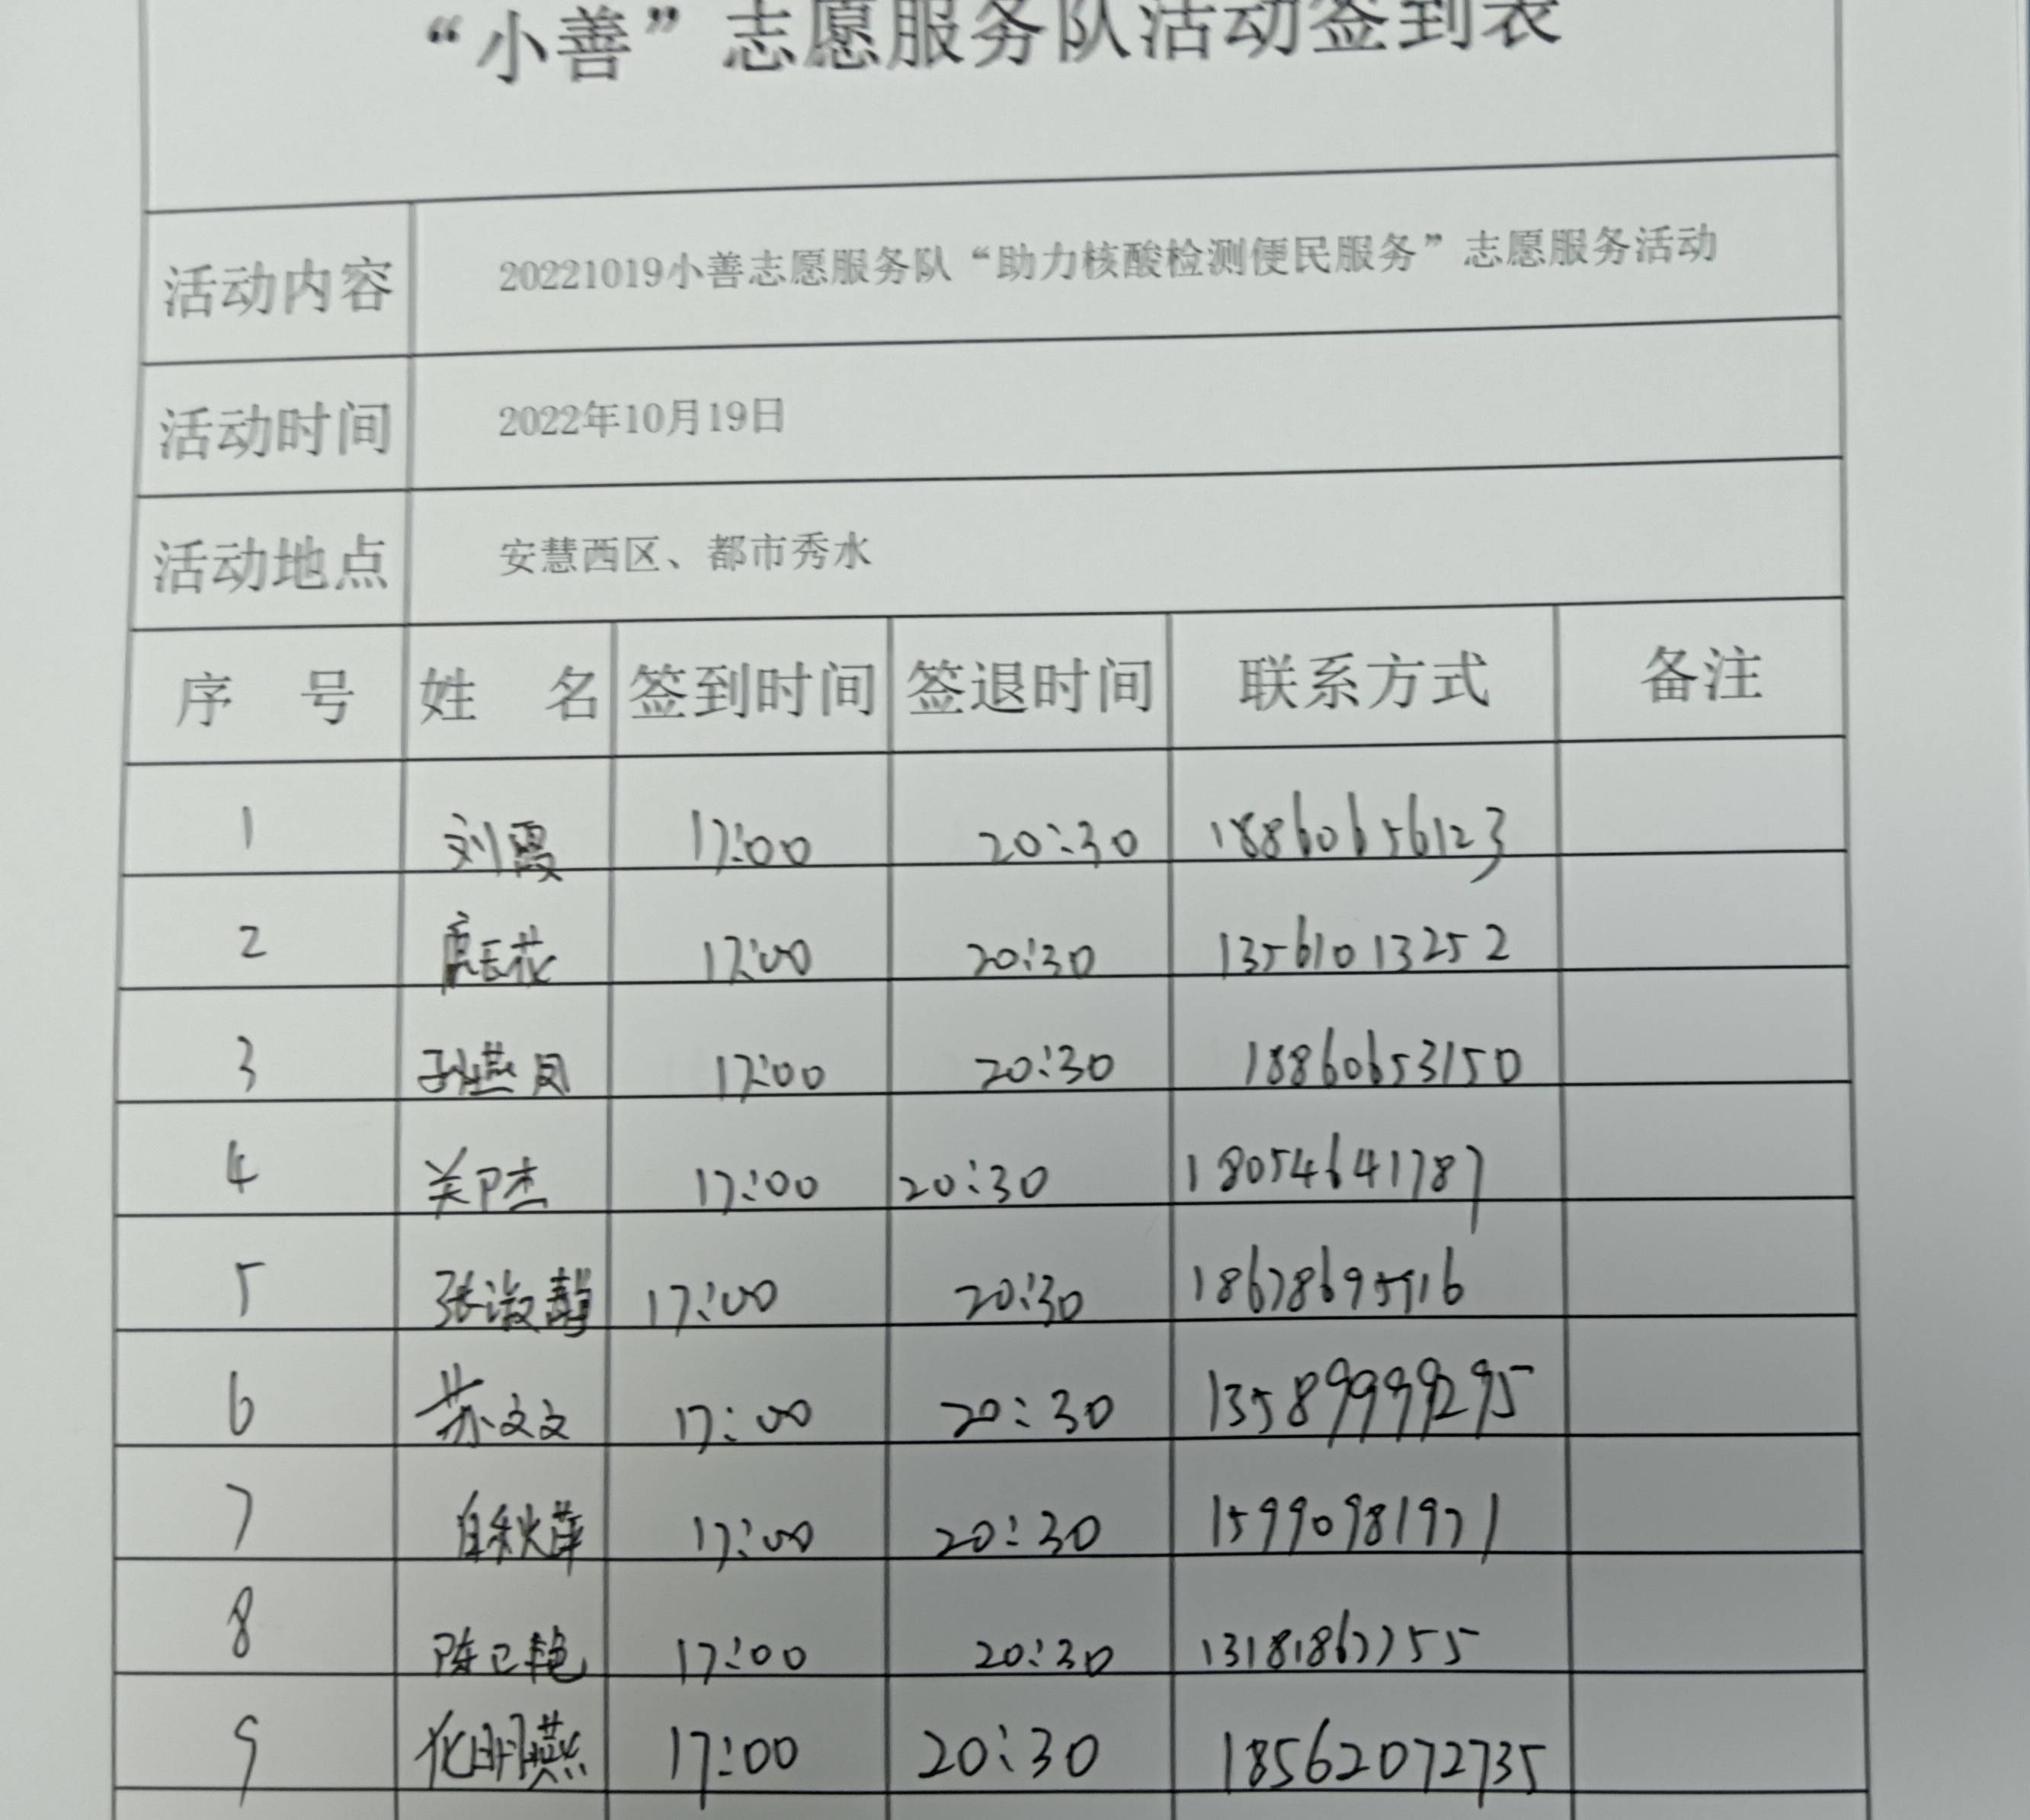 “小善”志愿服务队活动签到表
活动内容 20221019小善志愿服务队“助力核酸检测便民服务”志愿服务活动
活动时间 2022年10月19日
活动地点 安慧西区、都市秀水
序 号 姓 名 签到时间 签退时间 联系方式 备注
1 刘霞 17:00 20:30 18860656123
2 17:00 20:30 13561013252
3 孙燕凤 17:00 20:30 18860653150
4 关卫杰 17:00 20:30 18054641787
5 张淑静 17:00 20:30
6 苏文文 17:00 20:30 13589999295
7 17:00 20:30 15990981971
8 陈卫艳 17:00 20:30 13181867755
9 化明燕 17:00 20:30 18562072735